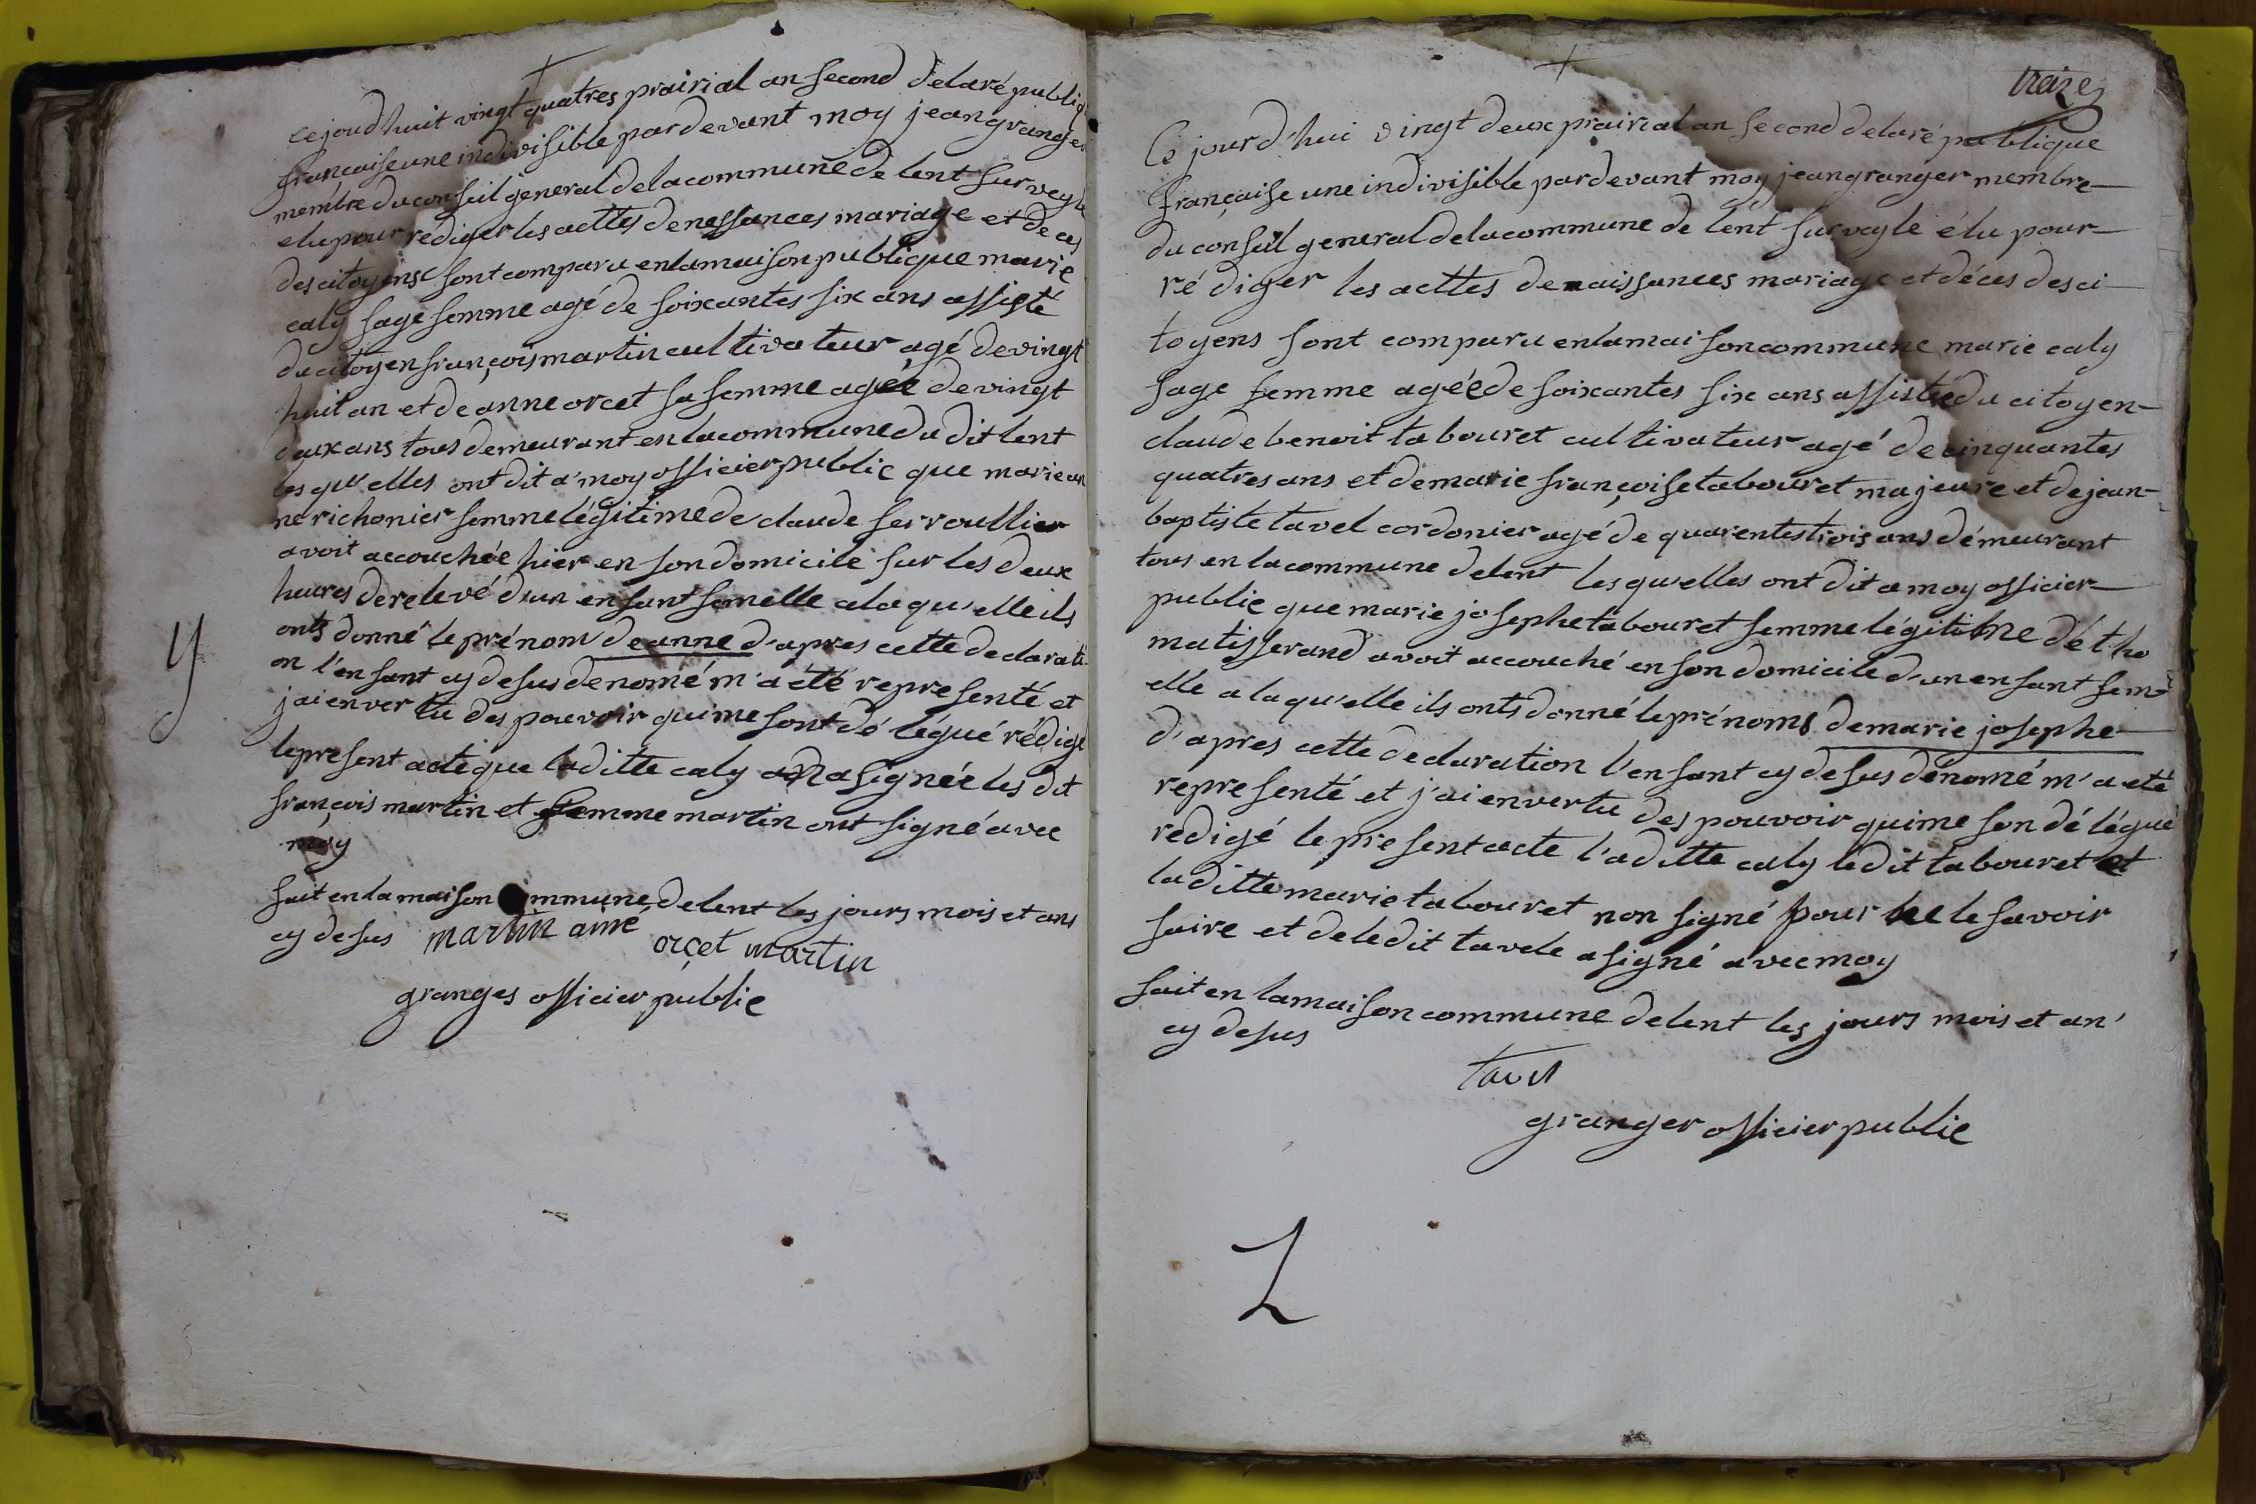 ce joud huit vingt quatres prairial an second delarépubliq
française une indivisible par devant moy jean granger
membre du conseil general de la commune de lent sur veyle
elu pour rédiger les acttes de nessances mariage et de ces
des citoyens sont comparu en la maison publique marie
caly sage femme agé de soixantes six ans assisté
du citoyen françois martin cultivateur agé de vingt
huit an et de anne orcet sa femme agée de vingt
deux ans tous demeurant en la commune du dit lent
les qu'elles ont dit a moy officier public que marie an
ne richonier femme légitime de claude ferroullier
avoit accouchée hier en son domicile sur les deux
heures de relevé d'un enfant femelle a la qu'elle ils
onts donné le prénom de anne d'apres cette declarati
on l'enfant cy desus denomé m'a eté representé et
j'ai en vertu des pouvoir qui me sont dé légué rédigé
le present acte que laditte caly a signée les dit
françois martin et femme martin ont signé avec
moy
fait en la maison commune de lent les jours mois et ans
cy desus martin ainé
orçet martin
granges officier public
y
treize
Ce jourd'hui vingt deux prairial an second de la république
française une indivisible par devant moy jean granger membre
du conseil general de la commune de lent sur veyle élu pour
ré diger les acttes de naissances mariage et déces des ci
toyens sont comparu en la maison commune marie caly
sage femme agéé de soixantes six ans assistée du citoyen
claude benoit tabouret cultivateur agé de cinquantes
quatres ans et de marie françoise tabouret majeure et de jean
baptiste tavel cordonier agé de quarentes trois ans démeurant
tous en la commune de lent les qu'elles ont dit a moy officier
public que marie josephe tabouret femme légitime dé tho
mas tisserand avoit accouché en son domicile d'un enfant fem
elle a la qu'elle ils onts donné le prénoms de marie josephe
d'apres cette declaration l'enfant cy desus dénomé m'a eté
representé et j'ai en vertu des pouvoir qui me son dé légué
redigé le present acte l'aditte caly ledit tabouret et
laditte marie tabouret non signé pour ne le savoir
faire et de ledit tavele a signé avec moy
fait en la maison commune de lent les jours mois et an
cy desus
tavel
granger officier public